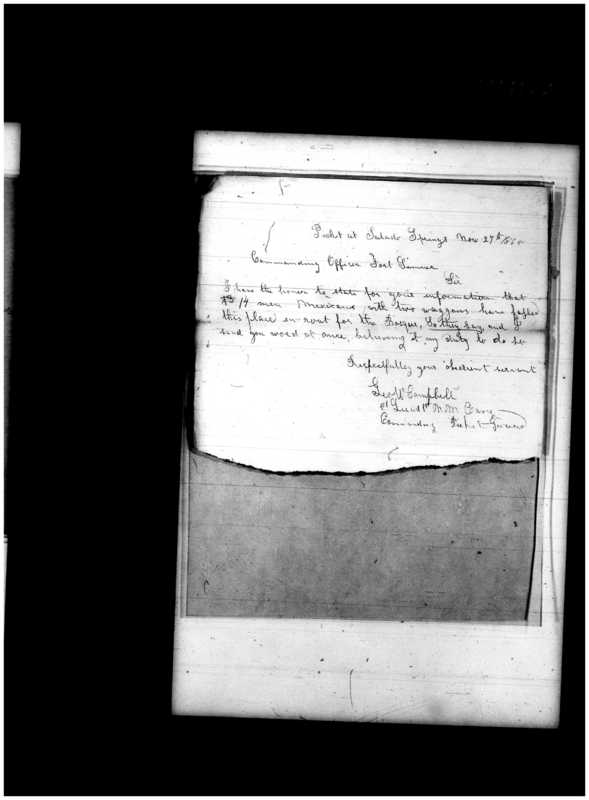 Picket at Salado Springs Nov 27th 186
Commanding Officer Fort Sumner
Sir
I have the honor to state for your information that
14 men Mexicans with two waggons have passed
this place en-rout for the Bosque, so they say, and I
send you word at once, believing it my duty to do so
Respectfully your obedient servant
Campbell
Commanding Picket